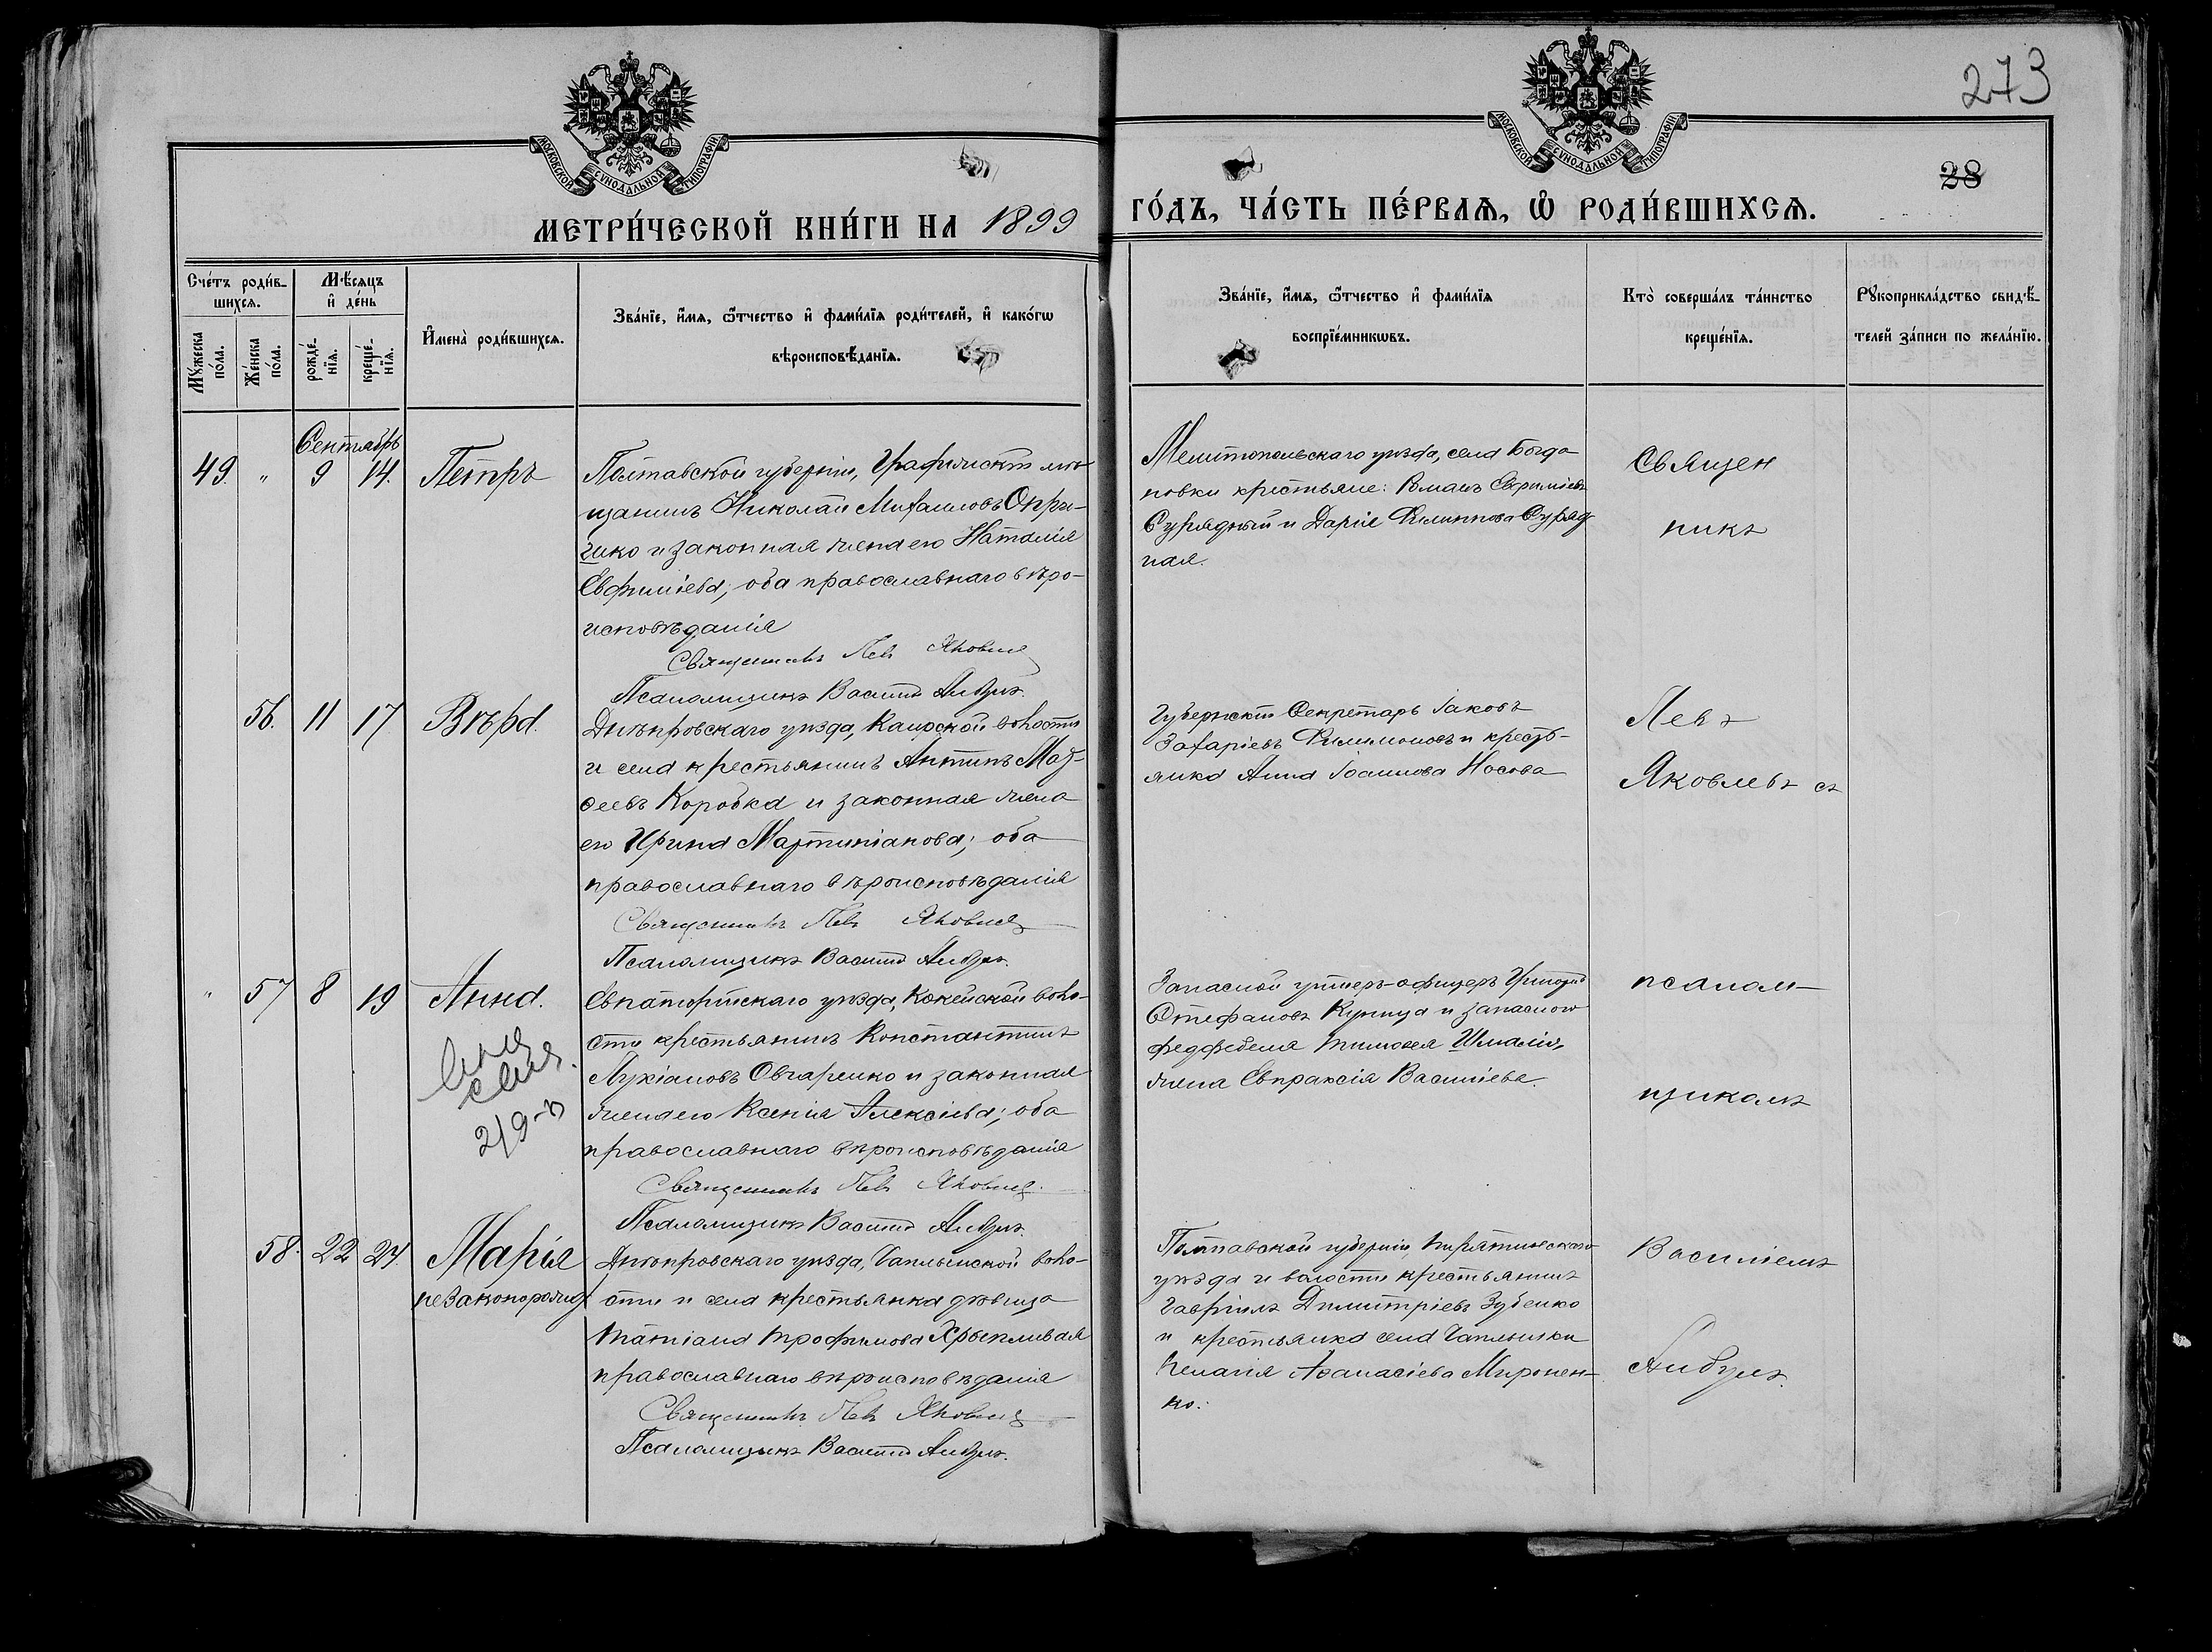 273
28
МОСКОВСКОЙ СѴНОДАЛЬНОЙ ТИПОГРАФІИ
МОСКОВСКОЙ СѴНОДАЛЬНОЙ ТИПОГРАФІИ
МЕТРИ́ЧЕСКОЙ КНИ́ГИ НА 1899 ГО́ДЪ, ЧА́СТЬ ПЕ́РВАѦ, Ѡ҆ РОДИ́ВШИХСѦ.
Сче́тъ роди́в-
шихсѧ.
Мꙋ́жеска по́ла.
Же́нска по́ла.
Мѣ́сѧцъ и҆ де́нь
рожде́-нїѧ.
креще́-нїѧ.
И҆мена̀ роди́вшихсѧ.
Зва́нїе, и҆́мѧ, ѻ҆́тчество и҆ фами́лїѧ роди́телей, и҆ како́гѡ
вѣроисповѣ́данїѧ.
Зва́нїе, и҆́мѧ, ѻ҆́тчество и҆ фами́лїѧ
воспрїе́мникѡвъ.
Кто̀ соверша́лъ та́инство
креще́нїѧ.
Рꙋкоприкла́дство свидѣ́-
телей за́писи по жела́нїю.
Сентябрь
49. " 9 14. Петръ
Полтавской губерніи,
щанинъ Николай Михаиловъ Опри-
шко и законная жена его Наталія
Евфиміева; оба православнаго вѣро-
исповѣданія
Священникъ Левъ Яковлев
Псаломщикъ Василій
Мелитопольскаго уѣзда, села Богда-
новки крестьяне: Романъ Евфиміевъ
Сурядный и Дарія Филиппова Суряд
ная.
Священ
никъ
56. 11 17 Вѣра.
Днѣпровскаго уѣзда, Каирской волости
и села крестьянинъ Антипъ Мат-
ѳеевъ Коробка и законная жена
его Ирина Мартиніанова; оба
православнаго вѣроисповѣданія
Священникъ Левъ Яковлев
Псаломщикъ Василій
Губернскій Секретарь Іаковъ
Захаріевъ Филимоновъ и кресть-
янка Анна Іоаннова Носова
Левъ
Яковлевъ съ
" 57 8 19 Анна.
2/9-
Евпаторійскаго уѣзда, воло-
сти крестьянинъ Константинъ
Лукіановъ Овчаренко и законная
жена его Ксенія Алексіева; оба
православнаго вѣроисповѣданія
Священникъ Левъ Яковлев
Псаломщикъ Василій
Запасной унтеръ-офицеръ Григорій
Стефановъ Куница и запасного
федфебеля Тимоѳея
жена Евпраксія Василіева.
псалом-
щикомъ
58. 22 24. Марія
незаконорожд
Днѣпровскаго уѣзда, Чаплынской воло-
сти и села крестьянка дѣвица
Татіана Трофимова Хрыпливая
православнаго вѣроисповѣданія
Священникъ Левъ Яковлев
Псаломщикъ Василій
Полтавской губерніи, Пирятинскаго
уѣзда и волости крестьянинъ
Гавріилъ Димитріевъ Зубенко
и крестьянка села Чаплынки
Пелагія Аѳанасіева Миронен-
ко.
Василіемъ